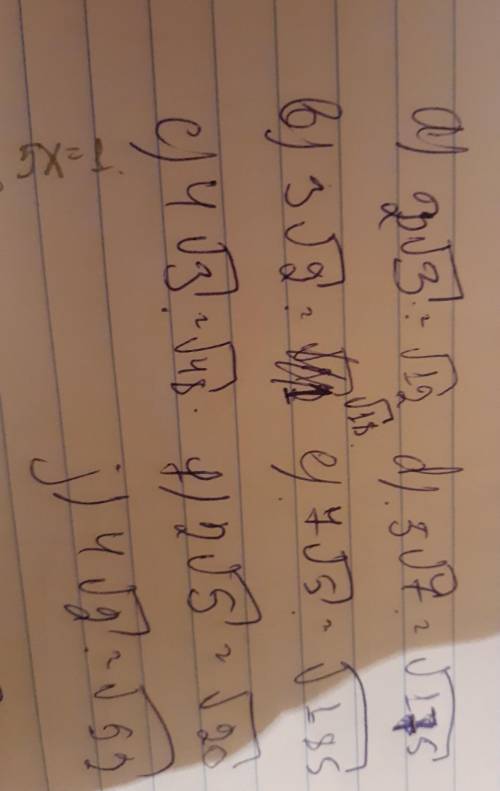 a) 2√3 = √12 d) 5√7 = √175
b) 3√2 = √18. e) 7√5 = √185
c) 4√3 = √48. f) 2√5 = √20
j) 4√2 = √62
5x=1.